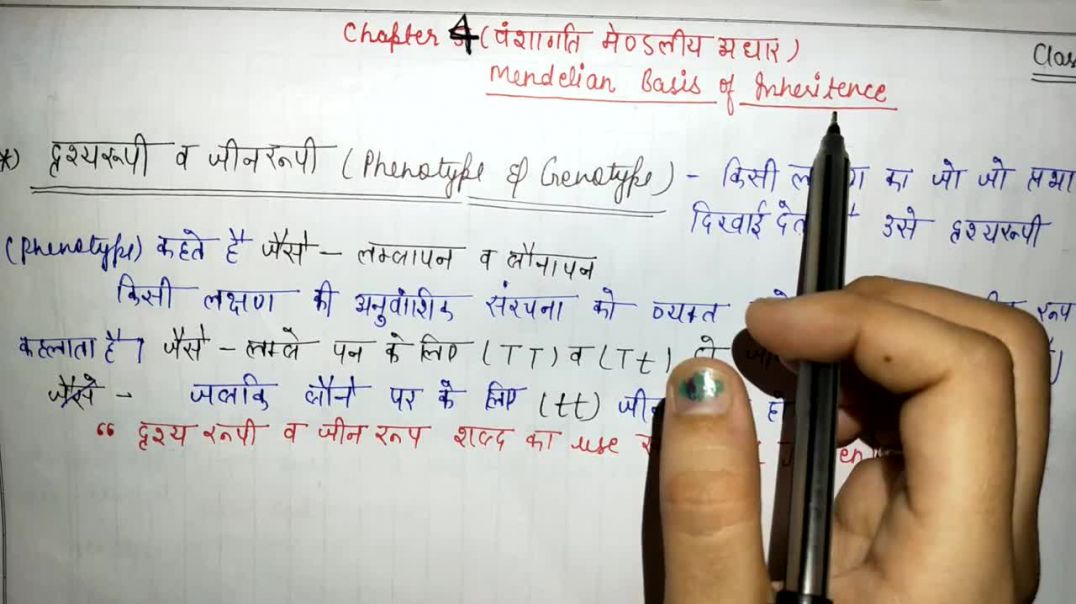 Chapter 4 (वंशागति मेण्डलीय अधार)
Class
Mendelian Basis of Inheritence
*) दृश्यरूपी व जीनरूपी (Phenotype & Genotype) - किसी का जो जो
दिखाई उसे दृश्यरूपी
(Phenotype) कहते है जैसे - लम्बापन व बौनापन
किसी लक्षण की अनुवांशिक संरचना को व्यक्त रूप
कहलाता है। जैसे - लम्बे पन के लिए (TT) व (Tt)
जैसे - जबकि बौने पर के लिए (tt)
“ दृश्य रूपी व जीन रूप शब्द का use